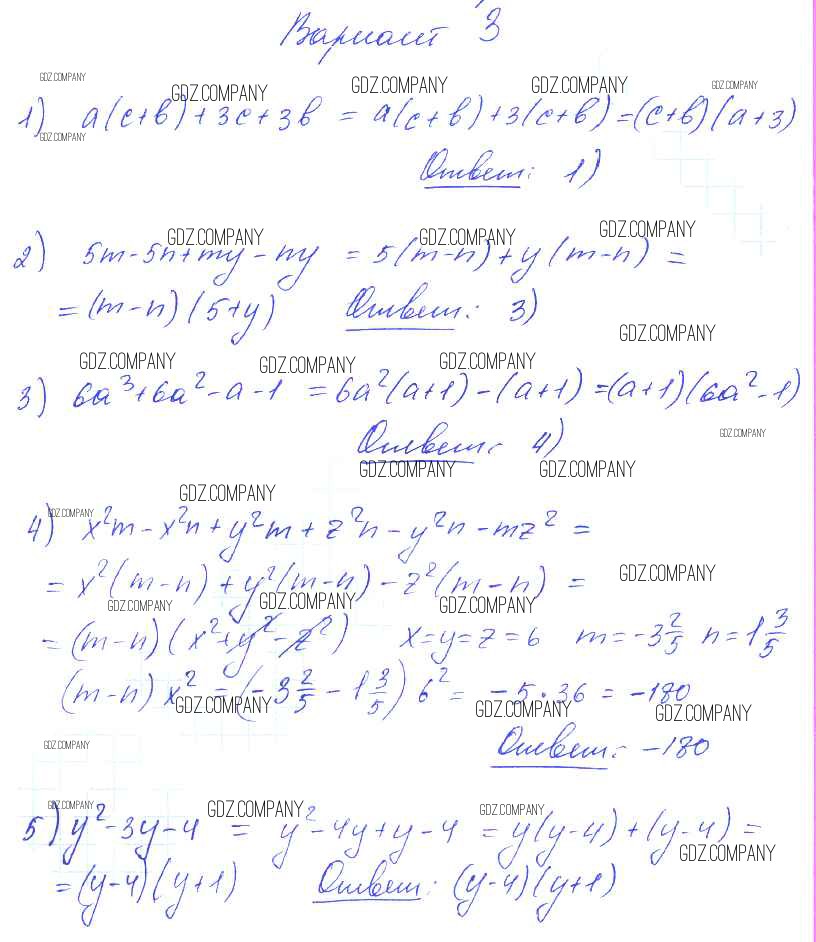 Вариант 3
GDZ.COMPANY GDZ.COMPANY GDZ.COMPANY GDZ.COMPANY GDZ.COMPANY
1) a(c+b)+3c+3b = a(c+b)+3(c+b)=(c+b)(a+3)
GDZ.COMPANY
Ответ: 1)
GDZ.COMPANY GDZ.COMPANY GDZ.COMPANY
2) 5m-5n+my-ny = 5(m-n)+y(m-n) =
= (m-n)(5+y) Ответ: 3)
GDZ.COMPANY
GDZ.COMPANY GDZ.COMPANY GDZ.COMPANY
3) 6a³+6a²-a-1 = 6a²(a+1)-(a+1)=(a+1)(6a²-1)
Ответ: 4)
GDZ.COMPANY
GDZ.COMPANY GDZ.COMPANY
GDZ.COMPANY
GDZ.COMPANY
4) x²m-x²n+y²m+z²n-y²n-mz² =
= x²(m-n)+y²(m-n)-z²(m-n) =
GDZ.COMPANY
GDZ.COMPANY GDZ.COMPANY GDZ.COMPANY
= (m-n)(x²+y²-z²) x=y=z=6 m=-3 2/5 n=1 3/5
(m-n)x² = (-3 2/5 - 1 3/5) 6² = -5·36 = -180
GDZ.COMPANY GDZ.COMPANY GDZ.COMPANY
Ответ: -180
GDZ.COMPANY
GDZ.COMPANY GDZ.COMPANY GDZ.COMPANY
5) y²-3y-4 = y²-4y+y-4 = y(y-4)+(y-4) =
GDZ.COMPANY
= (y-4)(y+1) Ответ: (y-4)(y+1)